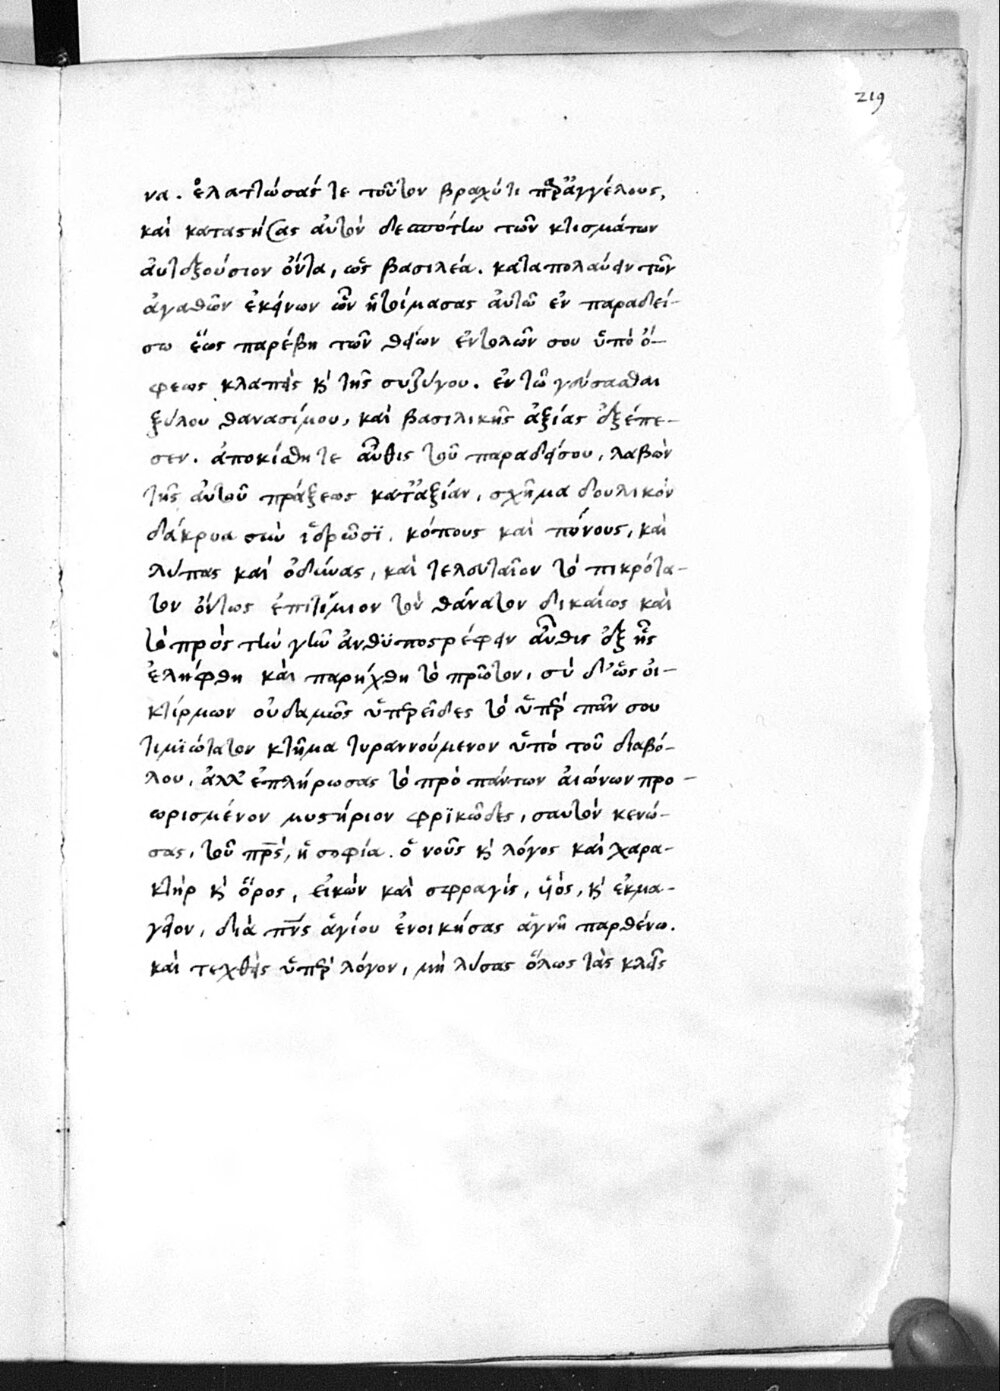 219
να. ἐλαττώσας τε τοῦτον βραχύ τι παρ' ἀγγέλους,
καὶ καταστήσας αὐτὸν δεσπότην τῶν κτισμάτων
αὐτεξούσιον ὄντα, ὡς βασιλέα. καταπολαύειν τῶν
ἀγαθῶν ἐκείνων ὧν ἡτοίμασας αὐτῶ ἐν παραδεί-
σω ἕως παρέβη τῶν θείων ἐντολῶν σου ὑπὸ ὄ-
φεως κλαπεὶς κ τῆς συζύγου. ἐν τῶ γεύσασθαι
ξύλου θανασίμου, καὶ βασιλικῆς ἀξίας ἐξέπε-
σεν. ἀποκίσθη τε αὖθις τοῦ παραδείσου, λαβὼν
τῆς αὐτοῦ πράξεως κατ' ἀξίαν, σχῆμα δουλικὸν
δάκρυα σὺν ἱδρῶσϊ. κόπους καὶ πόνους, καὶ
λύπας καὶ ὀδύνας, καὶ τελευταῖον τὸ πικρότα-
τον ὄντως ἐπιτίμιον τὸν θάνατον δικαίως καὶ
τὸ πρὸς τὴν γῆν ἀνθϋποστρέφειν αὖθις ἐξ ἧς
ἐλήφθη καὶ παρήχθη τὸ πρῶτον, σὺ δ' ὡς οἰ-
κτίρμων οὐδαμῶς ὑπερεῖδες τὸ ὑπὲρ πᾶν σου
τιμϊώτατον κτῆμα τυραννούμενον ὑπὸ τοῦ διαβό-
λου, ἀλλ' ἐπλήρωσας τὸ πρὸ πάντων αἰώνων προ-
ωρισμένον μυστήριον φρϊκῶδες, σαυτὸν κενώ-
σας, τοῦ πρς, ἡ σοφία. ὁ νοῦς κ λόγος καὶ χαρα-
κτὴρ κ ὅρος, εἰκὼν καὶ σφραγὶς, υἱός, κ ἐκμα-
γεῖον, διὰ πνς ἁγίου ἐνοικήσας ἁγνῆ παρθένω.
καὶ τεχθεὶς ὑπὲρ λόγον, μὴ λύσας ὅλως τὰς κλεῖς